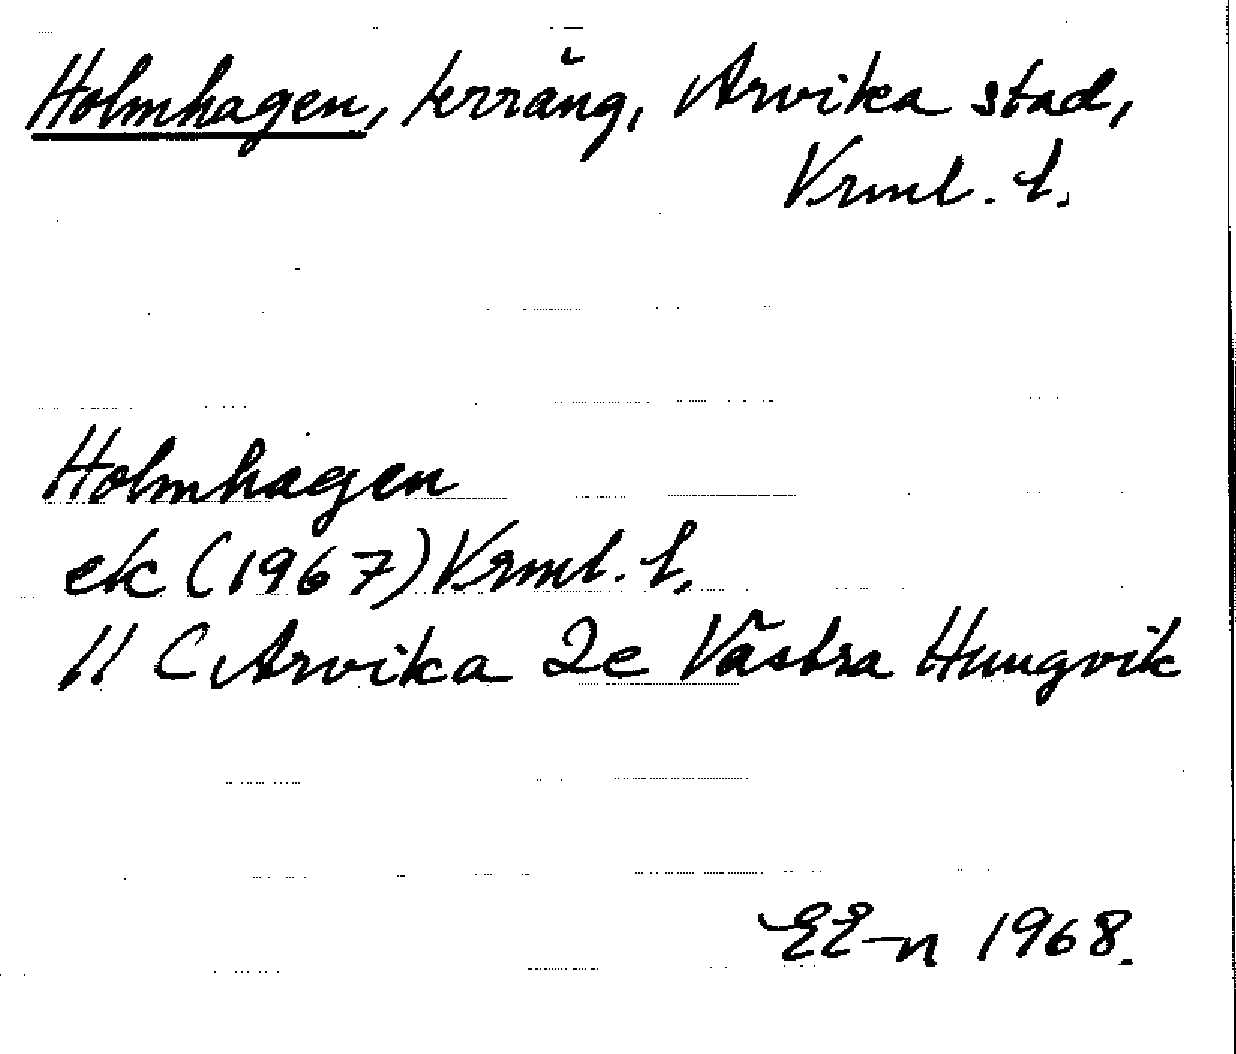 Holmhagen, terräng, Arvika stad,
Vrml. l.
Holmhagen
ek (1967) Vrml. l.
11 C Arvika 2e Västra Hungvik
EE-n 1968.